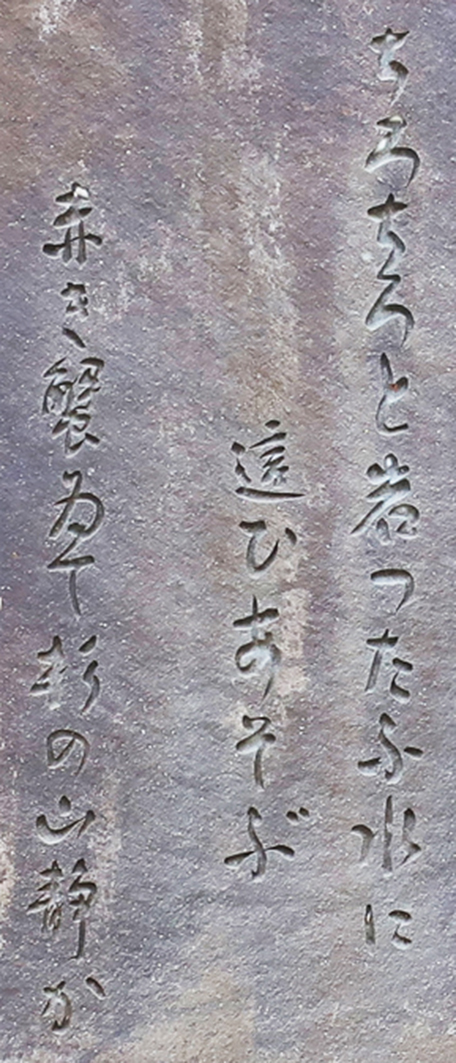 ちろちろと岩つたふ水に
這ひあそぶ
赤き蟹ゐて杉の山静か